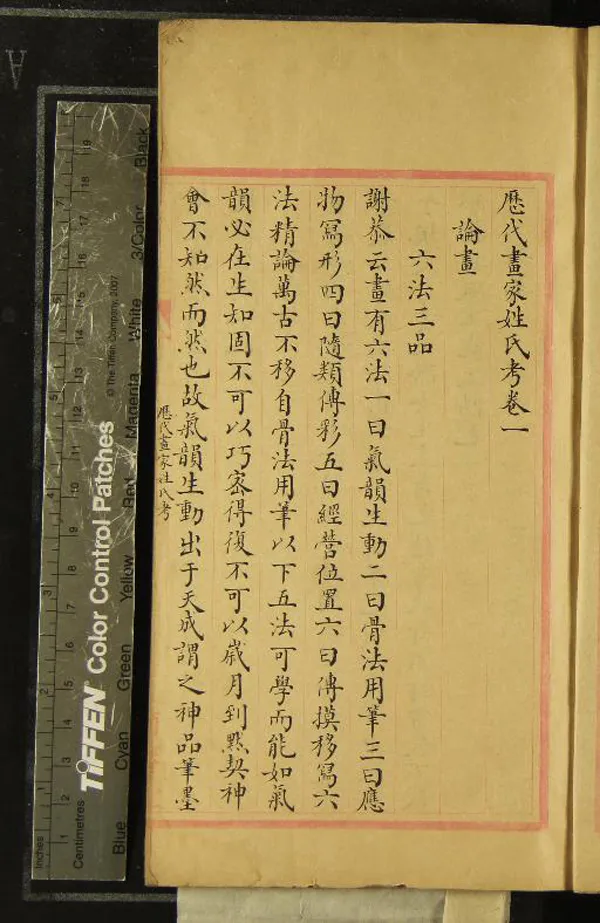 歷代畫家姓氏考卷一
論畫
六法三品
謝恭云畫有六法一曰氣韻生動二曰骨法用筆三曰應
物寫形四曰隨類傅彩五曰經營位置六曰傳摸移寫六
法精論萬古不移自骨法用筆以下五法可學而能如氣
韻必在生知固不可以巧密得復不可以歲月到默契神
會不知然而然也故氣韻生動出于天成謂之神品筆墨
歷代畫家姓氏考
Inches
Centimetres
TIFFEN Color Control Patches
© The Tiffen Company, 2007
Blue
Cyan
Green
Yellow
Red
Magenta
White
3/Color
Black
A